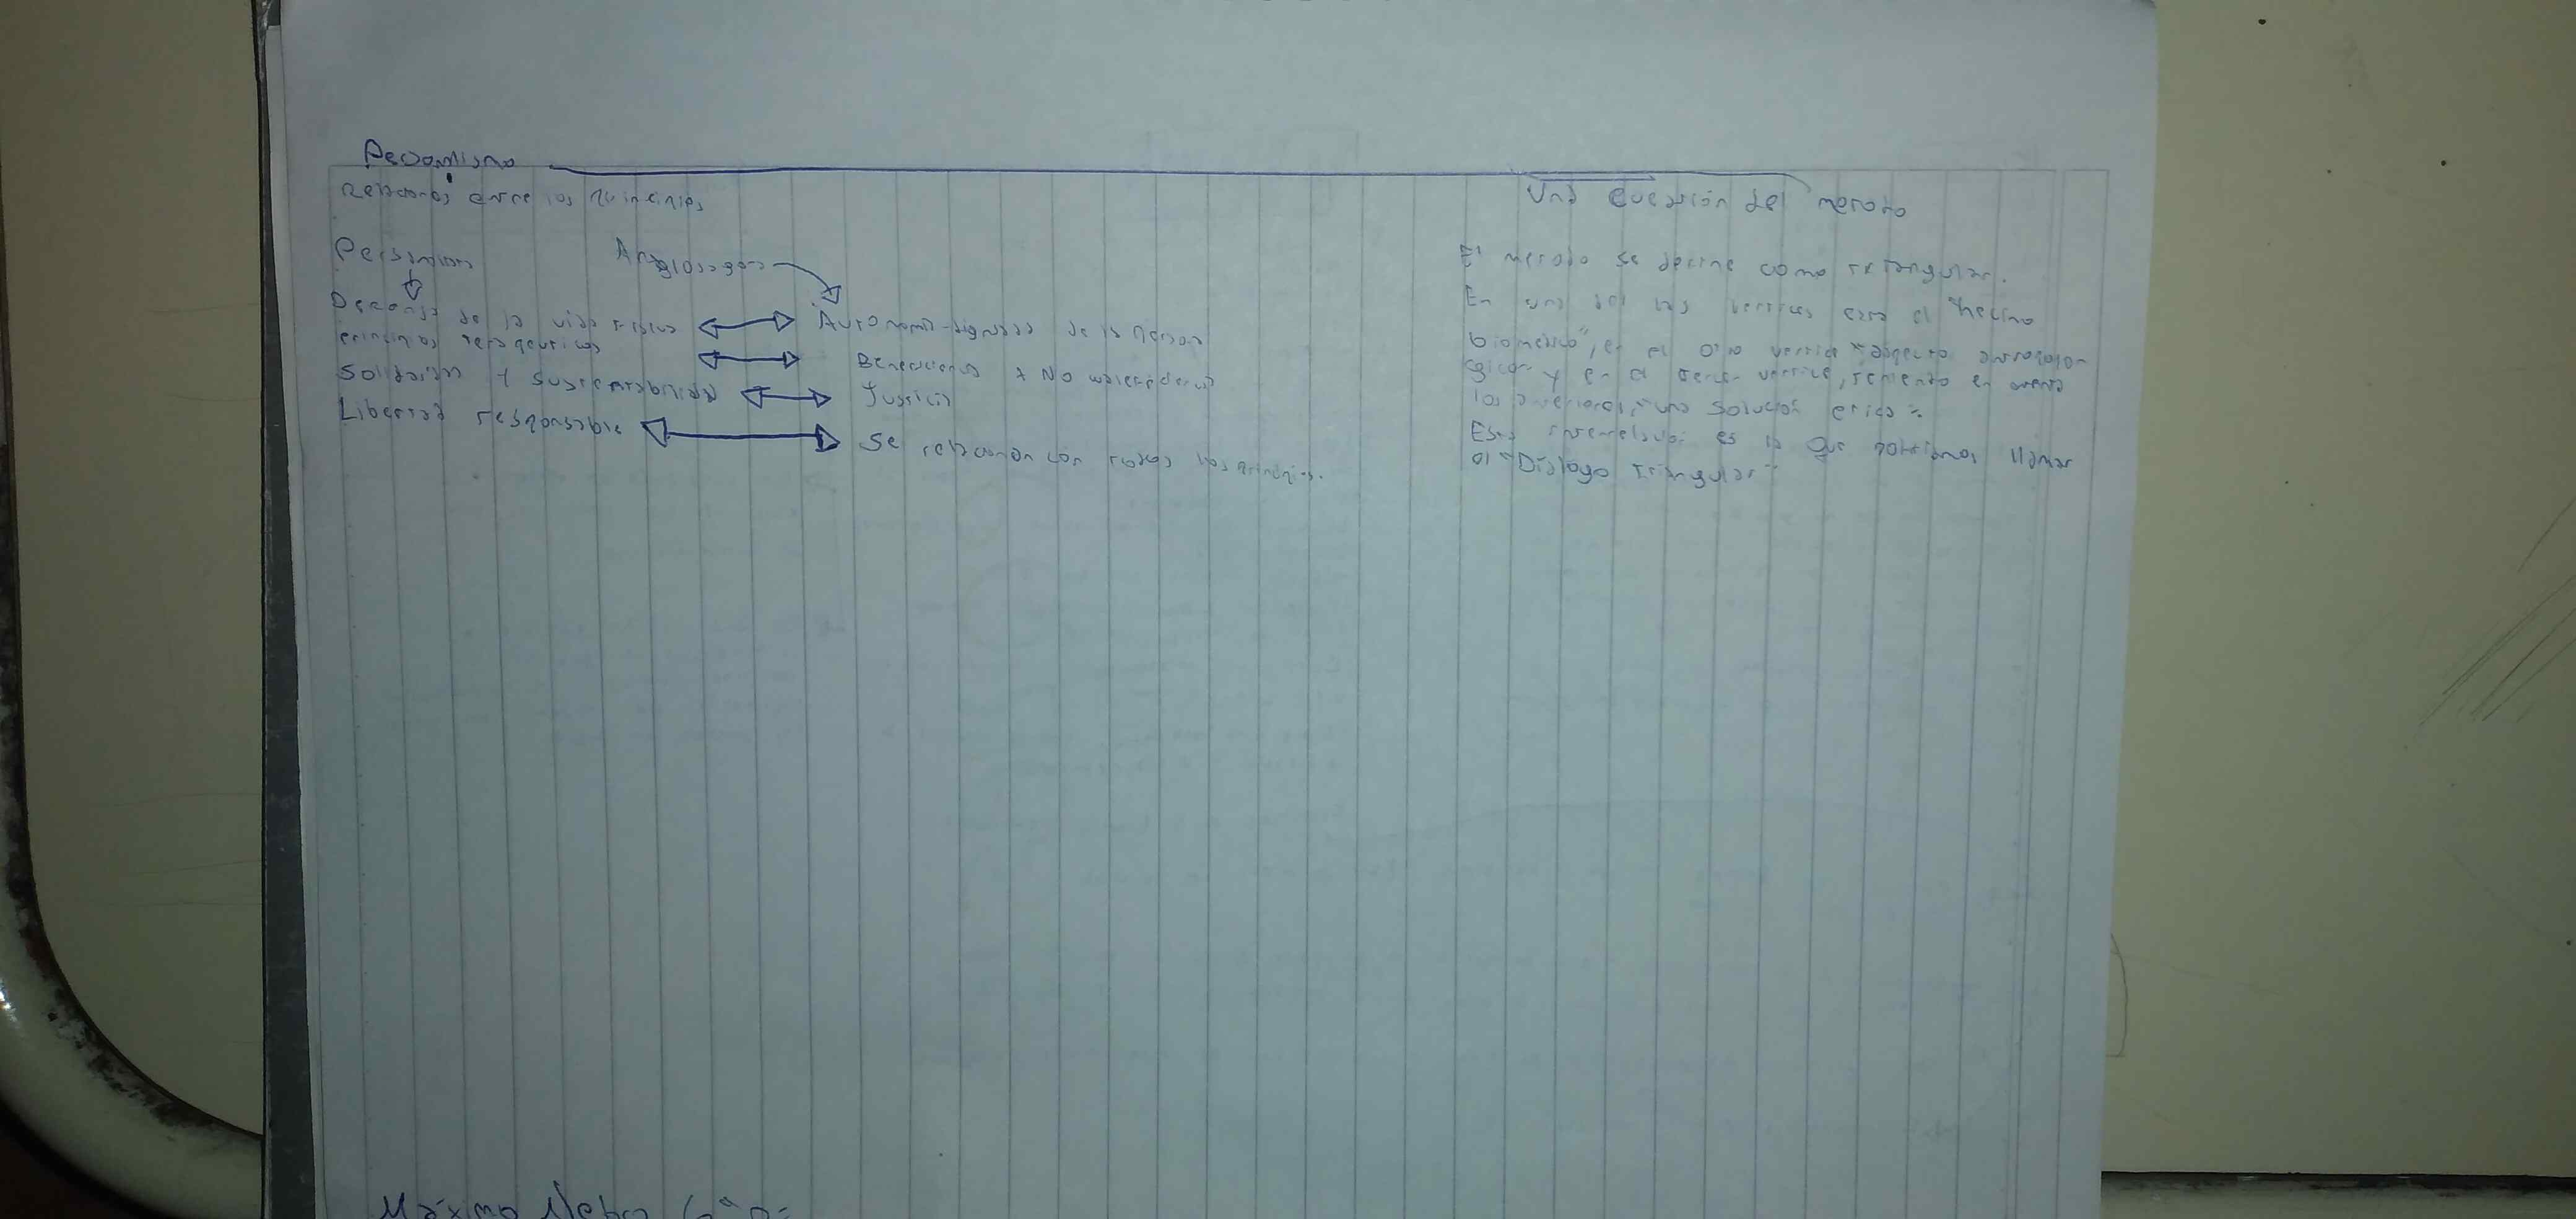 Personalismo
Relaciones entre los principios
Personalismo
Anglosajon
Defensa de la vida fisica
Autonomia-dignidad de la person
principios terapeuticos
Beneficiencia + No maleficiencia
Solidaridad y sustentabilidad
Justicia
Libertad responsable
Se relacionan con todos los principios.
Una cuestión del metodo
El metodo se define como triangular.
En uno de los vertices esta el "hecho
biomedico", en el otro vertice "aspecto antropolo
gico" y en el tercer vertice, teniendo en cuenta
los anteriores, "una solución etica".
Esta interrelacion es la que podriamos llamar
el "Diálogo triangular"
Máximo